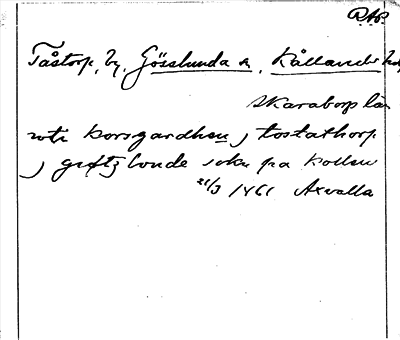 R.A.P.
Tåstorp, by, Gösslunda sn, Kållands hd
Skaraborgs län
voti korsgardhen j tostathorp
j giøtzlonde sokn pa kollen
21/3 1461 Axvalla